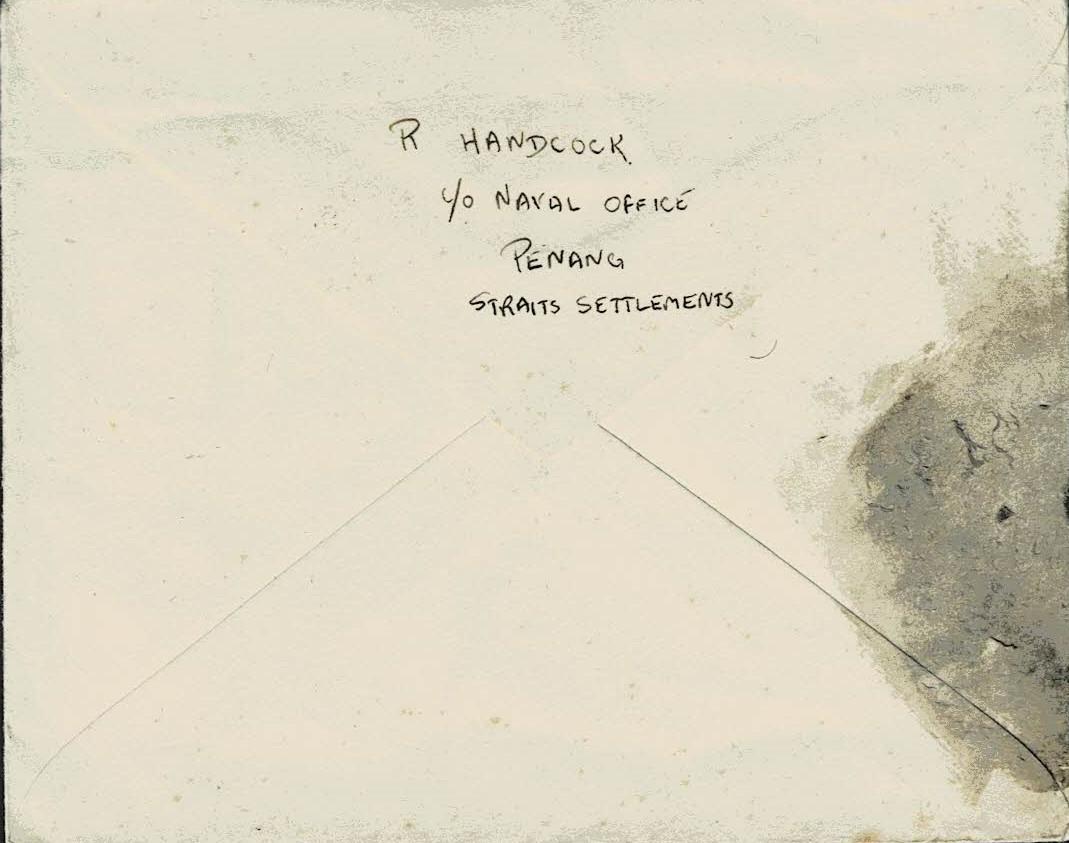 R HANDCOCK
c/o NAVAL OFFICE
PENANG
STRAITS SETTLEMENTS